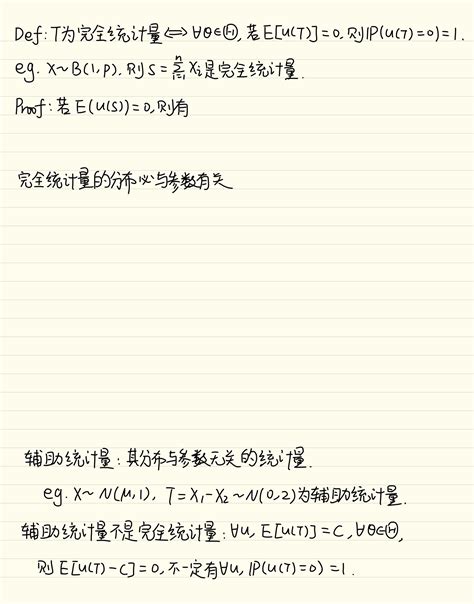 Def: T为完全统计量⇔∀θ∈Θ, 若E[u(T)]=0, 则P(u(T)=0)=1.
eg. X~B(1,P). 则S=∑ⁿᵢ₌₁Xᵢ是完全统计量.
Proof: 若E(u(S))=0, 则有
完全统计量的分布必与参数有关
辅助统计量: 其分布与参数无关的统计量.
eg. X~N(μ,1), T=X₁-X₂~N(0,2)为辅助统计量.
辅助统计量不是完全统计量: ∀u, E[u(T)]=C, ∀θ∈Θ,
则E[u(T)-C]=0, 不一定有∀u, P(u(T)=0)=1.